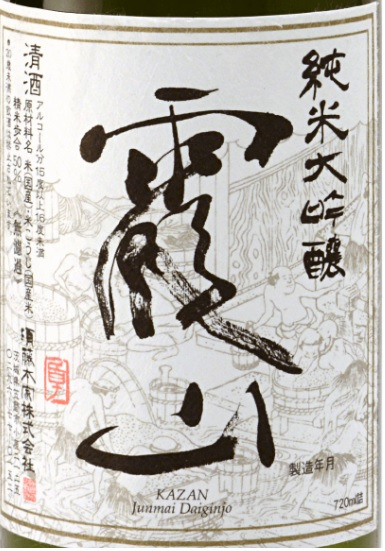 純米大吟醸
霞山
清酒
アルコール分15度以上16度未満
原材料名 米(国産)・米こうじ(国産米)
精米歩合50% (無濾過)
須藤本家株式会社
製造年月
720ml詰
KAZAN
Junmai Daiginjo